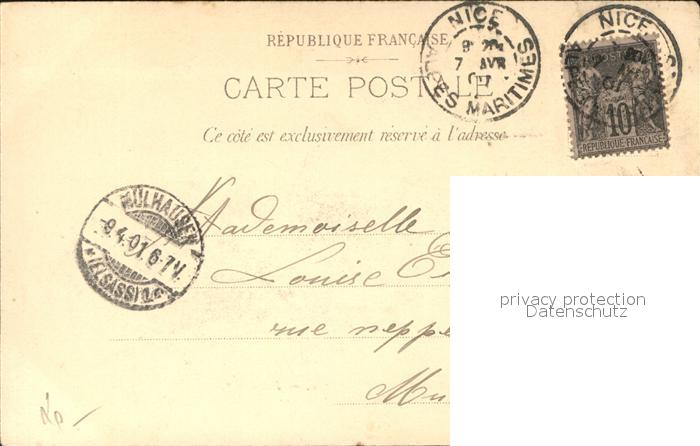 RÉPUBLIQUE FRANÇAISE
CARTE POSTALE
Ce côté est exclusivement réservé à l'adresse
NICE
7 AVR
ALPES MARITIMES
NICE
POSTES
10
RÉPUBLIQUE FRANÇAISE
MÜLHAUSEN
-9.4.01.6-7V.
(ELSASS)
Mademoiselle
Louise E
rue neppe
Mu
privacy protection
Datenschutz